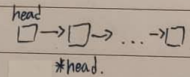 head
□→□→...→□
*head.